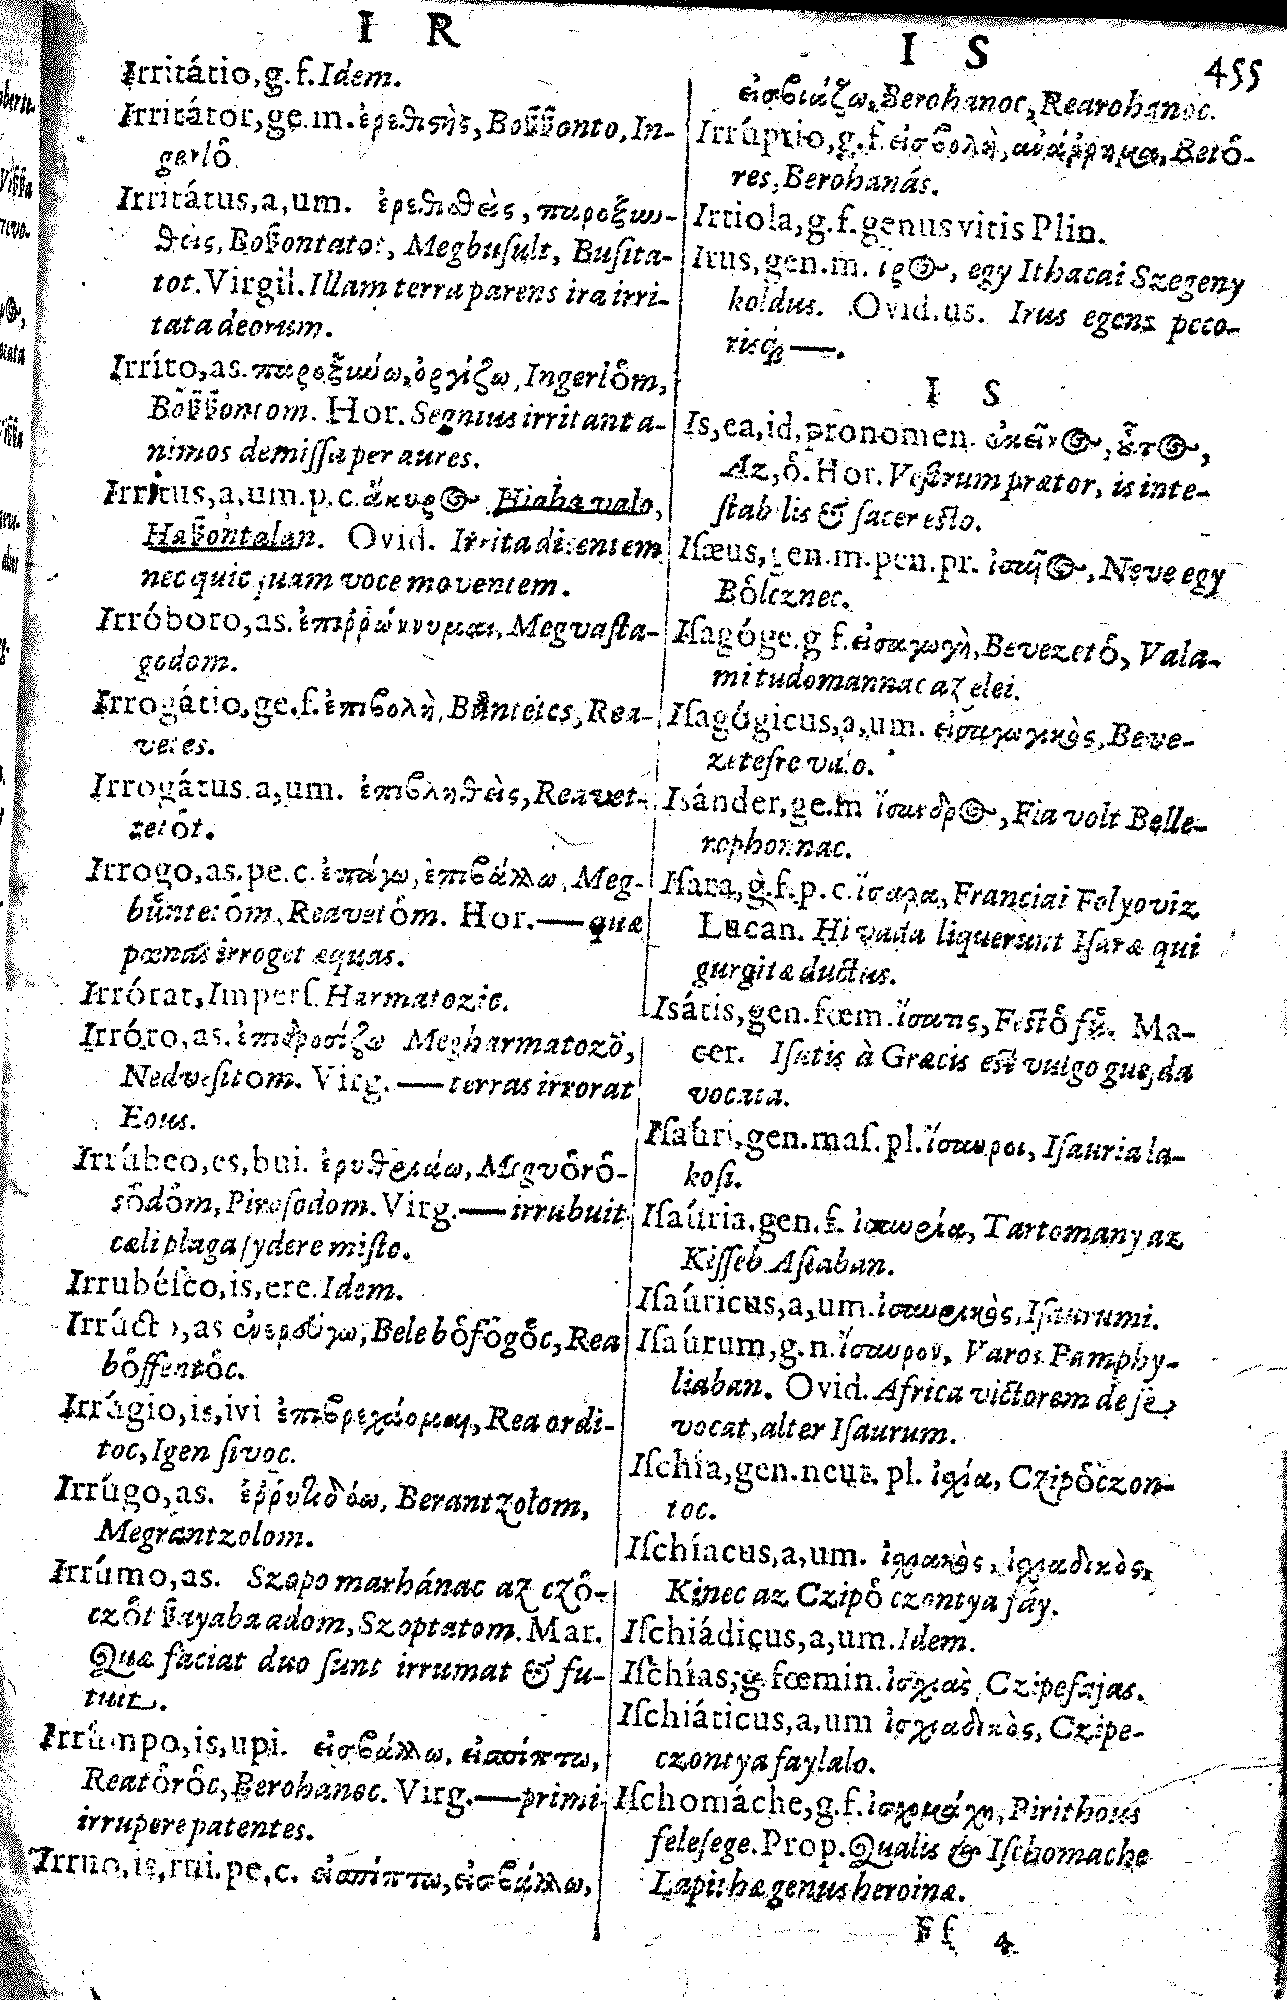 I R
Irritátio, g. f. Idem.
Irritátor, ge. m. ἐρεθιστὴς, Boſſonto, In-
gerlȏ
Irritátus, a, um. ἐρεθισθεὶς, παροξυν-
θεὶς, Boſſontatot, Megbuſult, Buſita-
tot. Virgil. Illam terra parens ira irri-
tata deorum.
Irríto, as. παροξυνύω, ὀργίζω, Ingerlȏm,
Boſſontom. Hor. Segnius irritant a-
nimos demiſſa per aures.
Irritus, a, um. p. c. ἄκυρος Hiaba valo,
Haſſontalan. Ovid. Irrita dicentem
nec quicquam voce moventem.
Irróboro, as. ἐπιῤῥώννυμαι, Megvaſta-
godom.
Irrogátio, ge. f. ἐπιβολὴ, Bűnteies, Rea-
vetes.
Irrogátus, a, um. ἐπιβληθεὶς, Reavet-
tetȏt.
Irrogo, as. pe. c. ἐπάγω, ἐπιβάλλω, Meg-
bűntetȏm, Reavetȏm. Hor. — quæ
pœnas irroget æquas.
Irrórat, Imperſ. Harmatozic.
Irróro, as. ἐπιδροσίζω Megharmatozȏ,
Nedveſitom. Virg. — terras irrorat
Eous.
Irrúbeo, es, bui. ἐρυθριάω, Megvȏrȏ-
sȏdȏm, Piroſodom. Virg. — irrubuit
cæli plaga ſydere miſto.
Irrubéſco, is, ere. Idem.
Irrúcto, as ἐνερεύγω, Bele bȏfȏgȏc, Rea
bȏffentȏc.
Irrúgio, is, ivi ἐπιβρυχάομαι, Rea ordi-
toc, Igen ſivoc.
Irrúgo, as. ἐῤῥυτιδόω, Berantzolom,
Megrantzolom.
Irrúmo, as. Szopo marhánac az czȏ-
czȏt ſſayaba adom, Szoptatom. Mar.
Quæ faciat duo ſunt irrumat & fu-
tuit.
Irrúmpo, is, upi. εἰσβάλλω, εἰσπίπτω,
Reatȏrȏc, Berohanoc. Virg. — primi
irrupere patentes.
Irruo, is, rui. pe, c. εἰσπίπτω, εἰσβάλλω,
I S
455
εἰσβιάζω, Berohanoc, Rearohanoc.
Irrúptio, g. f. εἰσβολὴ, ἀνάῤῥημα, Betȏ-
res, Berohanás.
Irtiola, g. f. genus vitis Plin.
Irus, gen. m. ἶρος, egy Ithacai Szegeny
koldus. Ovid. us. Irus egens peco-
risq́; —.
I S
Is, ea, id, pronomen. ἐκεῖνος, ὗτος,
Az, ȏ. Hor. Veſtrum prætor, is inte-
ſtabilis & ſacer eſto.
Iſæus, gen. m. pen. pr. ἰσαῖος, Neve egy
Bȏlcznec.
Iſagóge. g f. εἰσαγωγὴ, Bevezetȏ, Vala-
mi tudomannac az elei.
Iſagógicus, a, um. εἰσαγωγικὸς, Beve-
zeteſre valo.
Isánder, ge. m ἴσανδρος, Fia volt Belle-
rophonnac.
Iſara, g. f. p. c. ἴσαρα, Franciai Folyoviz
Lucan. Hi vada liquerunt Iſaræ qui
gurgite ductus.
Isátis, gen. fœm. ἴσατις, Feſtȏ fű. Ma-
cer. Iſatis à Græcis eſt vulgo gueſda
vocata.
Iſaúri, gen. maſ. pl. ἴσαυροι, Iſauria la-
koſi.
Iſaúria. gen. f. ἰσαυρία, Tartomany az
Kiſſeb Aſiaban.
Iſaúricus, a, um. ἰσαυρικὸς, Iſaurumi.
Iſaúrum, g. n. ἴσαυρον, Varos Pamphy-
liaban. Ovid. Africa victorem de ſe
vocat, alter Iſaurum.
Iſchía, gen. neut. pl. ἰσχία, Czipȏczon-
toc.
Iſchíacus, a, um. ἰσχιακὸς, ἰσχιαδικὸς,
Kinec az Czipȏ czontya fáy.
Iſchiádicus, a, um. Idem.
Iſchías, g fœmin. ἰσχιὰς, Czipefajas.
Iſchiáticus, a, um ἰσχιαδικὸς, Czipe-
czontya faylalo.
Iſchomáche, g. f. ἰσχομάχη, Pirithous
feleſege. Prop. Qualis & Iſchomache
Lapithæ genus heroinæ.
Ff 4